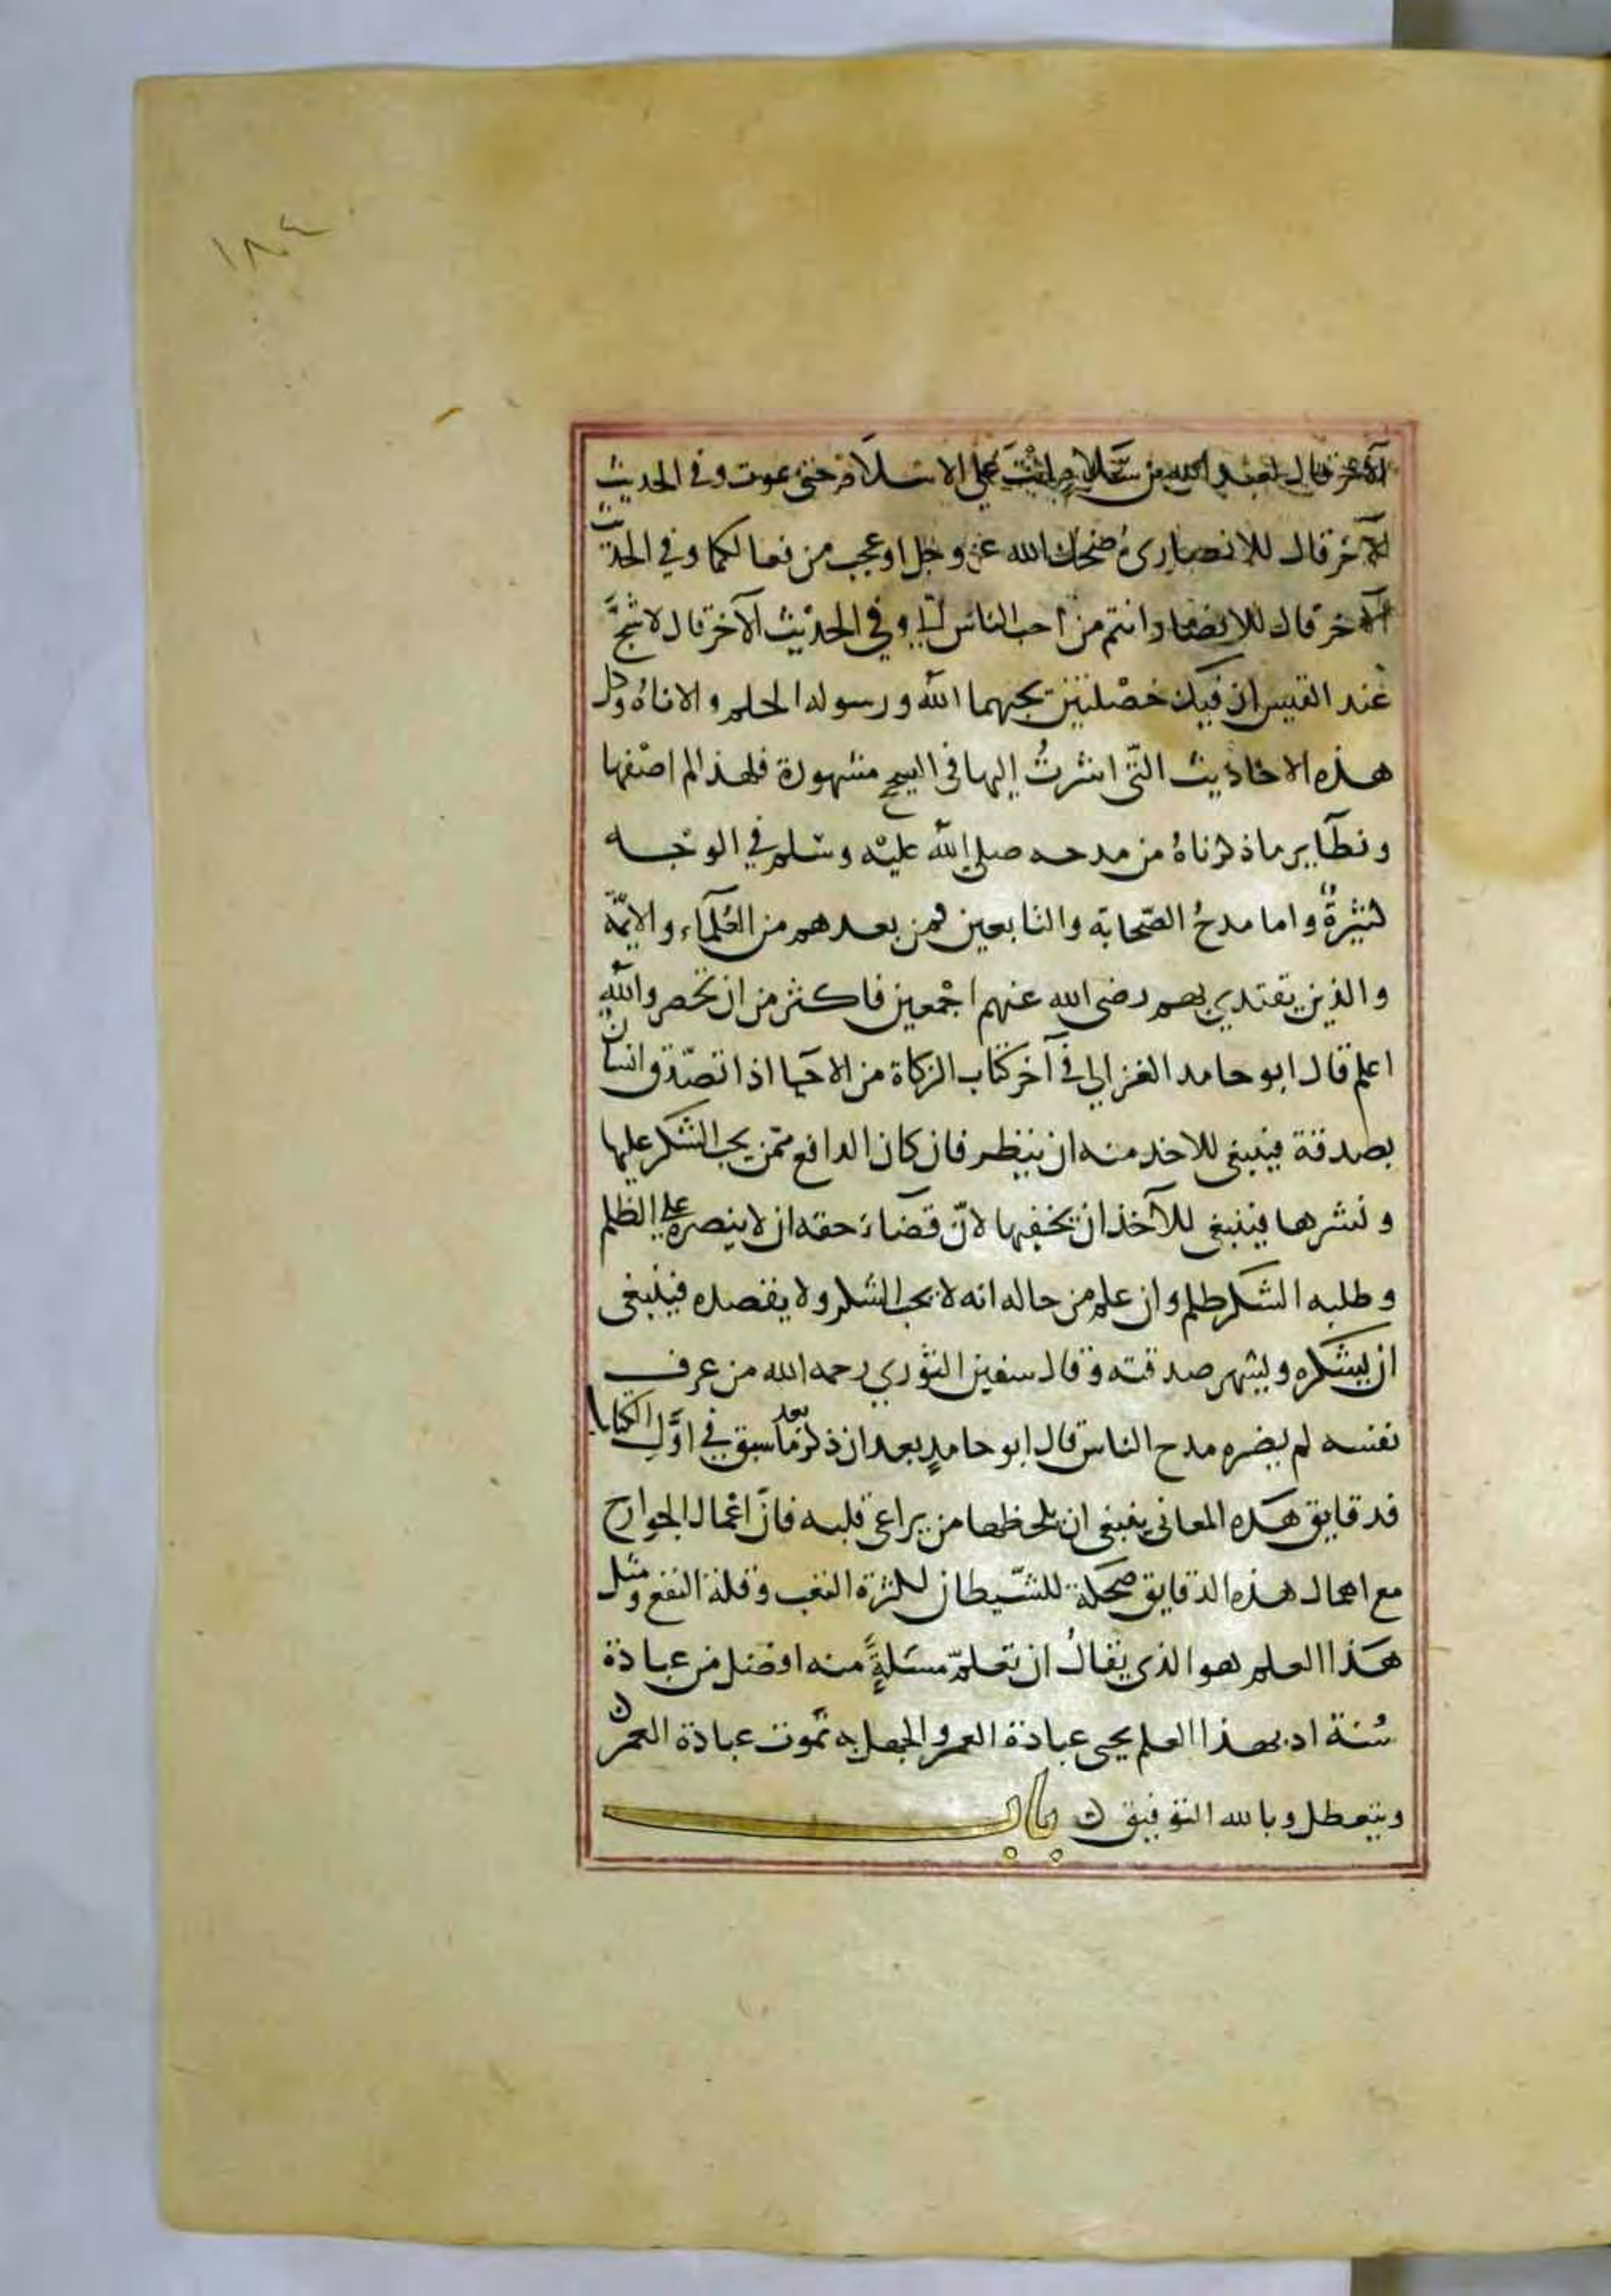 ١٨٠٤
الآخر قال لعبد الله بن سلام انت على الاسلام حتى تموت وفي الحديث
الآخر قال للانصاري ضحك الله عز وجل او عجب من فعالكما وفي الحديث
الآخر قال للانصار انتم من احب الناس اليّ وفي الحديث الآخر قال لاشجّ
عند القيس ان فيك خصلتين يحبهما الله ورسوله الحلم والاناه وكل
هذه الاحاديث التّى اشرتُ إليها في الصحيح مشهورة فلهذا لم اضفها
ونظآير ما ذكرناهُ من مدحه صلى الله عليه وسلم في الوجه
كثيرةٌ واما مدحُ الصّحابة والتابعين فمن بعدهم من العُلمآء والايمّة
والذين يقتدي بهم رضى الله عنهم اجْمعين فاكثر من ان تحصر والله
اعلم قال ابو حامد الغزالي في آخر كتاب الزكاة من الاحيا اذا تصّدق انسان
بصدقة فينبغى للاخذ منه ان ينظر فان كان الدافع ممّن يحب الشكر عليها
ونشرها فينبغى للآخذ ان يخفيها لانّ قضاء حقه ان لا ينصره على الظلم
وطلبه الشكر ظلم وان علم من حاله انه لا يحب الشكر ولا يقصده فينبغى
ان يشكره ويشهر صدقته وقال سفين الثوري رحمه الله من عرف
نفسه لم يضره مدح الناس قال ابو حامدٍ بعد ان ذكر ما سبق في اوّل الكتاب
فدقايق هذه المعاني ينبغى ان يلحظها من يراعى قلبه فانّ اعْمال الجوارح
مع اهمال هذه الدقايق ضحكة للشّيطان لكثرة التعب وقلة النفع ومثل
هذا العلم هو الذى يقالُ ان تعلمّ مسَلةٍ منه افضل من عبادة
سُنة اذ بهذا العلم يحيى عبادة العمر والجهل به تموت عبادة العمر
ويتعطل وبالله التوفيق باب